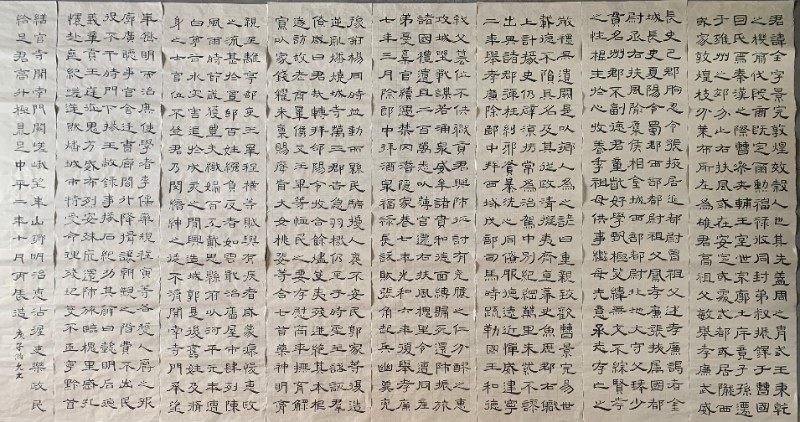 君諱全字景完敦煌效穀人也其先蓋周之胄武王秉乾
之機翦伐殷商既定爾勳福祿攸同封弟叔振鐸于曹國
因氏焉秦漢之際曹參夾輔王室世宗廓土斥竟子孫遷
于雍州之郊分止右扶風或在安定或處武都或居隴西
或家敦煌枝分葉布所在為雄君高祖父敏舉孝廉武威
長史巴郡朐忍令張掖居延都尉曾祖父述孝廉謁者金
城長史夏陽令蜀郡西部都尉祖父鳳孝廉張掖屬國都
尉丞右扶風隃麋侯相金城西部都尉北地大守父琫少
貫名州郡不幸早世是以位不副德君童齔好學甄極毖緯無文不綜賢孝
之性根生於心收養季祖母供事繼母先意承志存亡之
敬禮無遺闕是以鄉人為之諺曰重親致歡曹景完易世
載德不隕其名及其從政清擬夷齊直慕史魚歷郡右職
上計掾史仍辟涼州常為治中別駕紀綱萬里朱紫不謬
出典諸郡彈枉糾邪貪暴洗心同僚服德遠近憚威建寧
二年舉孝廉除郎中拜西域戊部司馬時疏勒國王和德
弒父篡位不供職貢君興師征討有吮膿之仁分醪之惠
攻城野戰謀若涌泉威牟諸賁和德面縛歸死還師振旅
諸國禮遺且二百萬悉以簿官遷右扶風槐里令遭同產
弟憂棄官續遇禁罔潛隱家巷七年光和六年復舉孝廉
七年三月除郎中拜酒泉祿福長訞賊張角起兵幽冀兗
豫荊楊同時並動而縣民郭家等復造
逆亂燔燒城寺萬民騷擾人裹不安三郡告急羽檄仍至
僚咸曰君哉轉拜郃陽令收合餘燼芟夷殘迸絕其本根
以家錢糴米粟賜癃盲大女桃婓等合七首藥神明膏
親至離亭部吏王宰程橫等賦與有疾者咸蒙瘳悛惠政
之流甚於置郵百姓繈負反者如雲戢治廧屋市肆列陳
風雨時節歲獲豐年農夫織婦百工戴恩縣前以河平元年遭
白茅谷水灾害退於戊亥之間興造城郭是後舊姓及脩
身之士官位不登君乃閔縉紳之徒不濟開南寺門承望
華嶽鄉明而治庶使學者李儒欒規程寅等各獲人爵之報
廓廣聽事官舍廷曹廊閤升降揖讓朝覲之階費不出民
役不干時門下掾王敞錄事掾王畢懿明后德
義章貢王庭征鬼方威布烈安殊荒還師旅臨槐里感孔
懷赴喪紀嗟逆賊燔城市特受命理殘圮芟不臣寧黔首
繕官寺開南門闕嵯峨望華山鄉明治惠沾渥吏樂政民
給足君高升極鼎足中平二年十月丙辰造